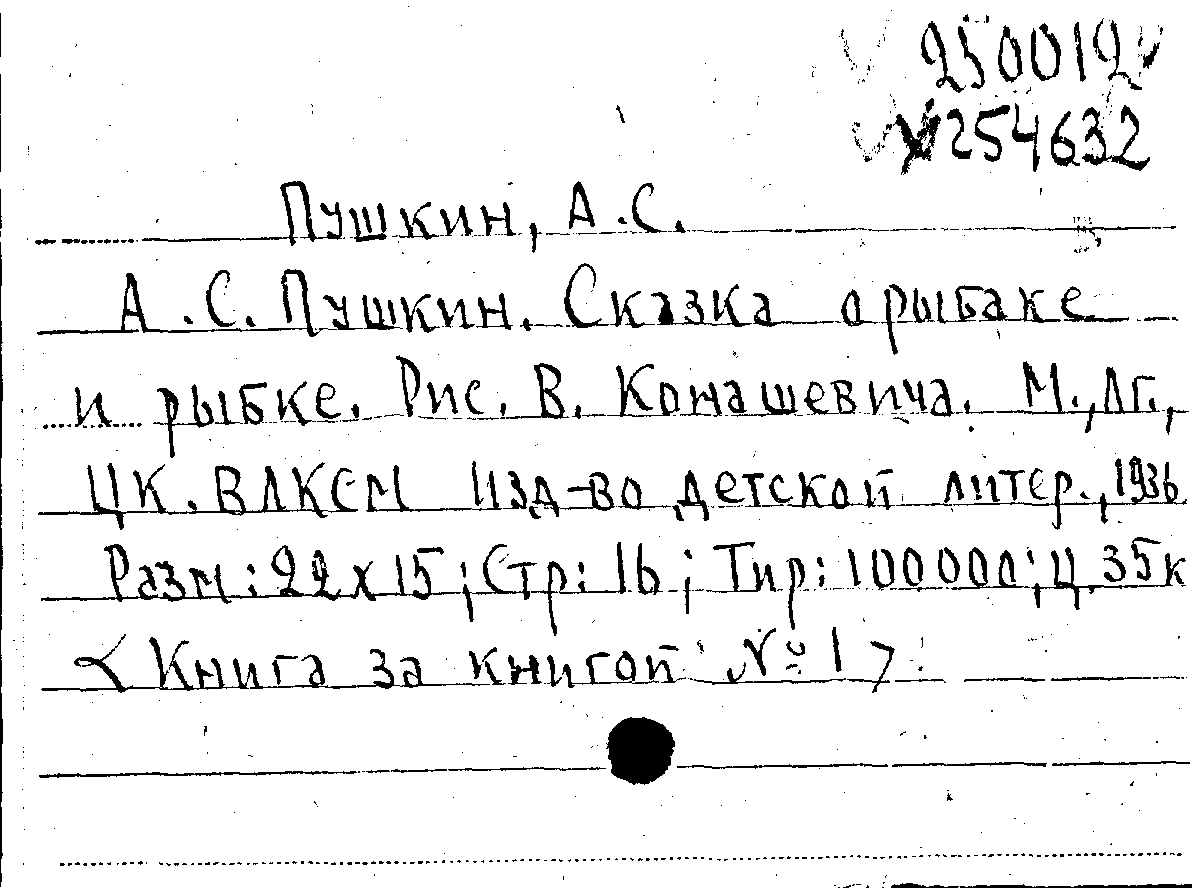 250012
254632
Пушкин, А.С.
А.С. Пушкин. Сказка о рыбаке
и рыбке. Рис. В. Конашевича. М., Лг.,
ЦК. ВЛКСМ Изд-во детской литер., 1936
Разм: 22х15; Стр: 16; Тир: 100000; Ц. 35к
<Книга за книгой № 1>